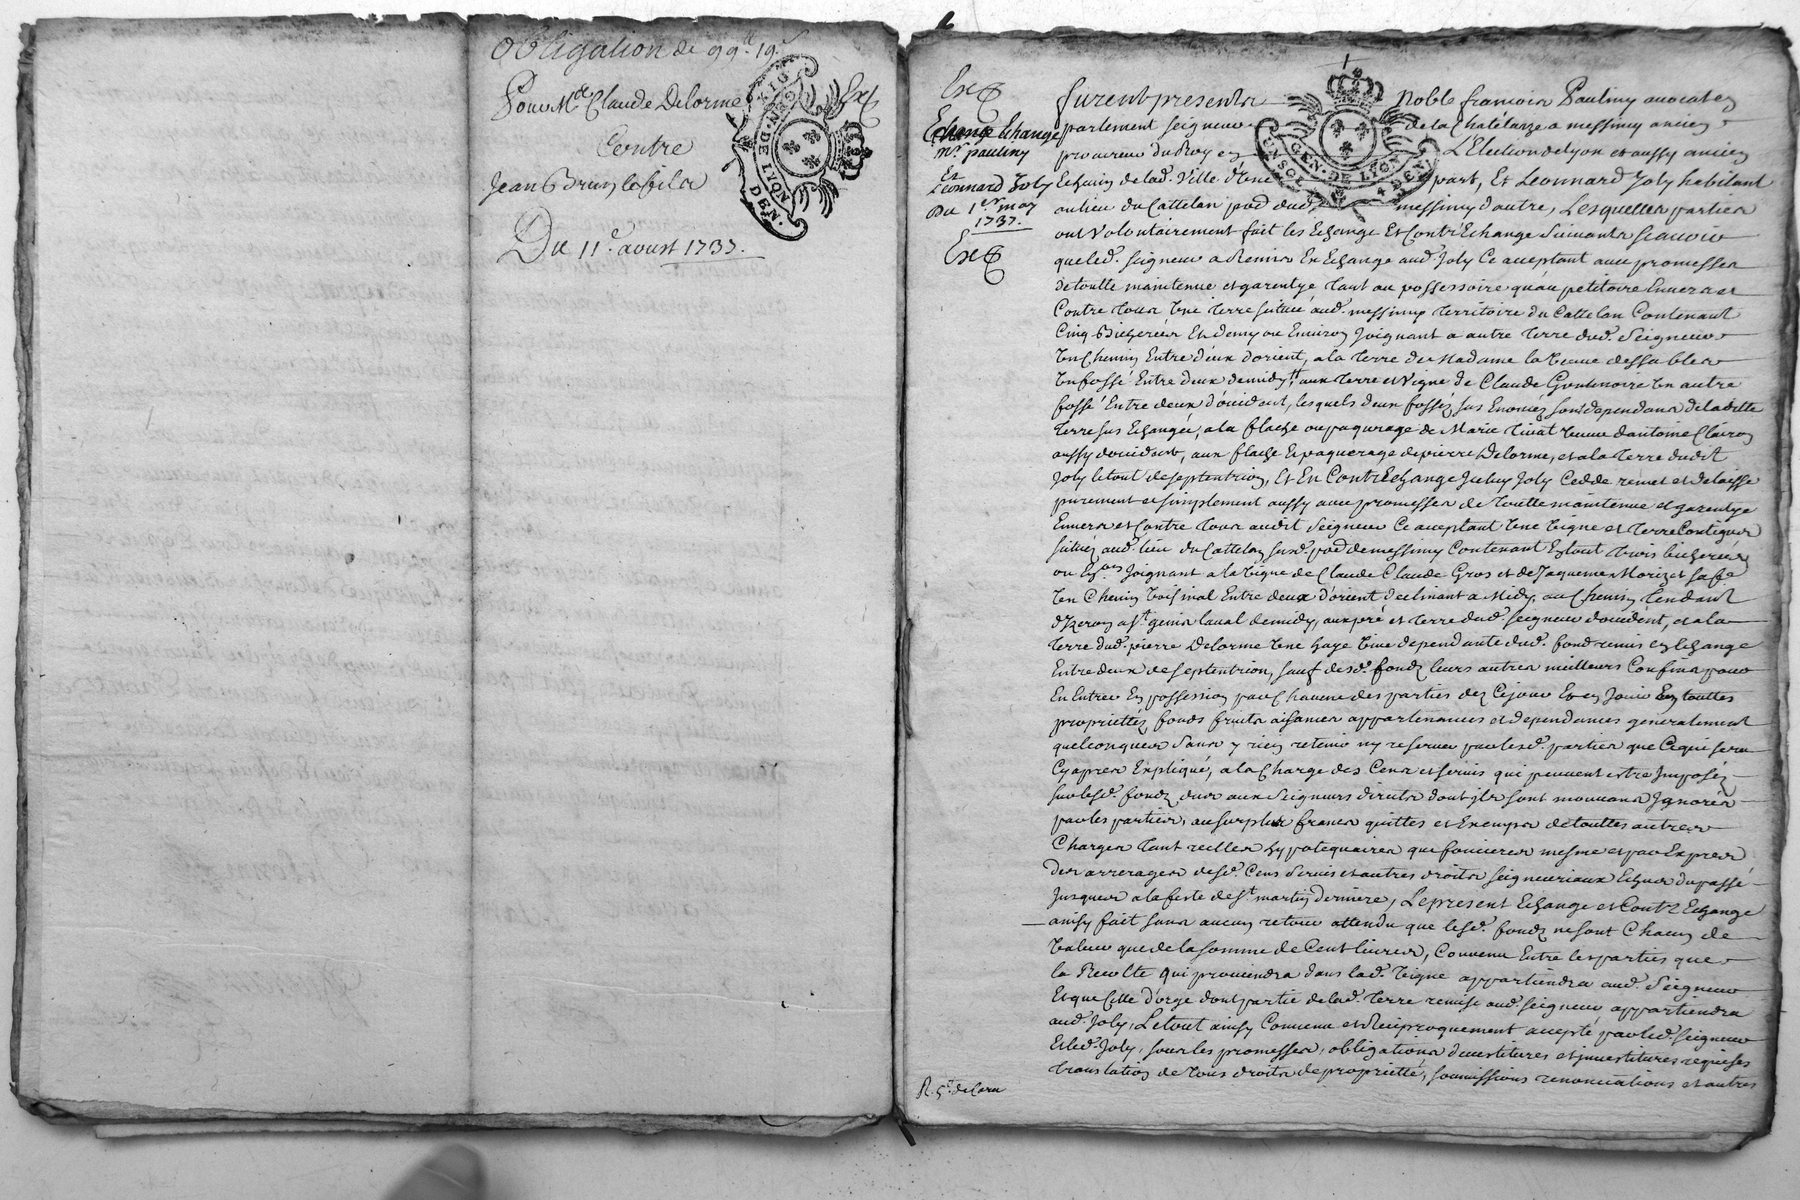 Obligation de 99tt 19s
Pour Me Claude Delorme
Ext
Contre
Jean Brun le fils
Du 11e aoust 1737.
GEN. DE LYON
DEN.
Ext
Echange
Mr pauliny
Et
Leonnard Joly
Du 1er may
1737.
Ext
GEN. DE LYON
furent presents Noble francois Pauliny avocat en
parlement seigneur de la Chatelarze a messimy ancien
procureur du Roy en L'Election de lyon et aussy ancien
Echevin de lad. Ville d'une part, Et Leonnard Joly habitant
au lieu du Cattelan pssd dud. messimy d'autre, Lesquelles parties
ont volontairement fait les Echange Et Contr'Echange suivants scavoir
que led. seigneur a Remis En Echange aud. Joly Ce acceptant avec promesses
de toutte maintenue et garentye tant au possessoire qu'au petitoire Envers et
Contre tous Une terre scituée aud. messimy territoire du Cattelan Contenant
Cinq Bicherées Et demy ou Environ Joignant a autre terre dud. Seigneur
Un Chemin Entre deux d'orient, a la terre de Madame la Veuve dessables
Un fossé Entre deux de midy, aux terre et Vigne de Claude Goutenoire Un autre
fossé Entre deux d'occident, lesquels deux fossés sus Enoncés sont dependans de laditte
terre sus Echangée, a la flache ou paquerage de Marie Vivat Veuve d'antoine Clairon
aussy d'occident, aux flache Et paquerage de pierre Delorme, et a la terre dudit
Joly le tout de septentrion, Et En Contr'Echange Icelluy Joly Cedde remet et delaisse
purement et simplement aussy avec promesses de toutte maintenue et garentye
Envers et Contre tous audit Seigneur Ce acceptant Une Vigne et terre Contigues
scituées aud. lieu du Cattelan susd. pssd de messimy Contenant En tout trois bicherées
ou Environ Joignant a la Vigne de Claude Claude Gros et de Jaqueme Morizet sa fe
Un Chemin Voisinal Entre deux d'orient declinant a Midy, au Chemin tendant
d'Izeron a St genis laval de midy, aux pré et terre dud. seigneur d'occident, et a la
terre dud. pierre Delorme Une haye Vive dependante dud. fond remis En Echange
Entre deux de septentrion, sauf desd. fonds leurs autres meilleurs Confins pour
En Entrer En possession par Chacune des parties dez Cejour Et en Jouir En touttes
proprietés fonds fruits aisances appartenances et dependances generalement
quelconques sans y rien retenir ny reserver par lesd. parties que Ce qui sera
Cy apres Expliqué, a la Charge des Cens et servis qui peuvent estre Imposés
sur lesd. fonds dus aux Seigneurs directs dont ils sont mouvans Ignorés
par les parties, au surplus francs quittes et Exempts de touttes autres
Charges tant reelles hypotequaires que foncieres mesme et par Exprès
des arrerages desd. Cens Servis et autres droits seigneuriaux Echus du passé
Jusques a la feste de St martin derniere, Le present Echange et Contr'Echange
ainsy fait sans aucun retour attendu que lesd. fonds ne sont Chacun de
Valeur que de la somme de Cent livres, Convenu Entre les parties que
la Recolte qui proviendra dans lad. Vigne appartiendra aud. Seigneur
Et que Celle d'orge dont partie de lad. terre remise aud. seigneur appartiendra
aud. Joly, Le tout ainsy Convenu et Reciproquement accepté par led. seigneur
Et led. Joly, sous les promesses, obligations devestitures et investitures requises
translation de tous droits de proprietté, soumissions renonciations et autres